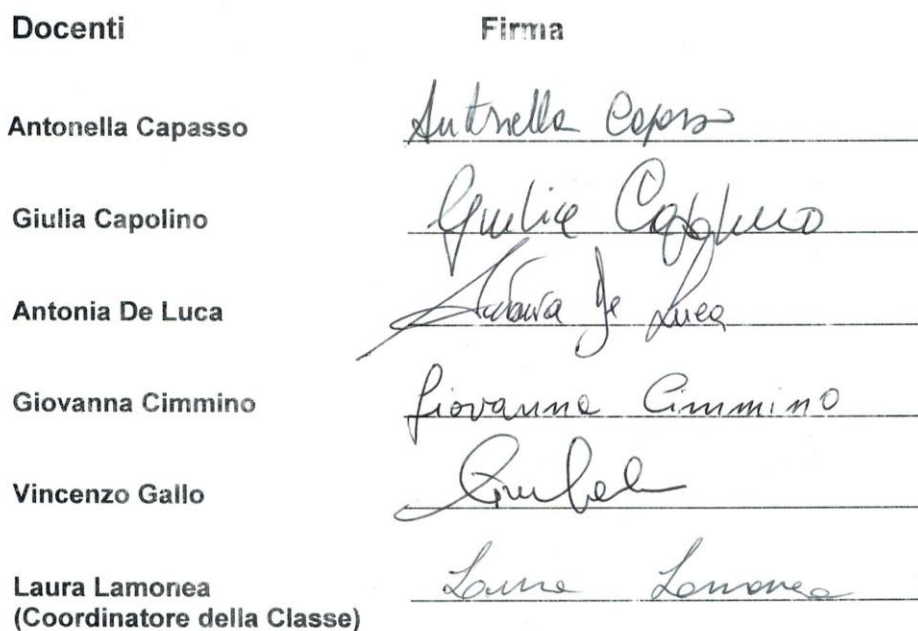 Docenti Firma
Antonella Capasso Antonella Capasso
Giulia Capolino Giulia Capolino
Antonia De Luca Antonia De Luca
Giovanna Cimmino Giovanna Cimmino
Vincenzo Gallo
Laura Lamonea Laura Lamonea
(Coordinatore della Classe)